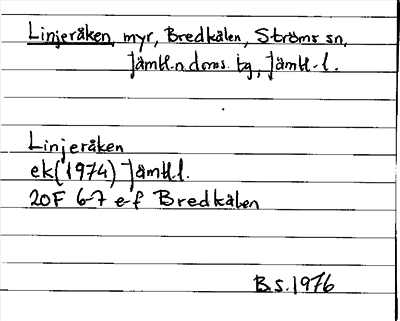 Linjeråken, myr, Bredkälen, Ströms sn,
Jämtl. n. doms. tg, Jämtl. l.
Linjeråken
ek (1974) Jämtl. l.
20F 6-7 e-f Bredkälen
B.S. 1976